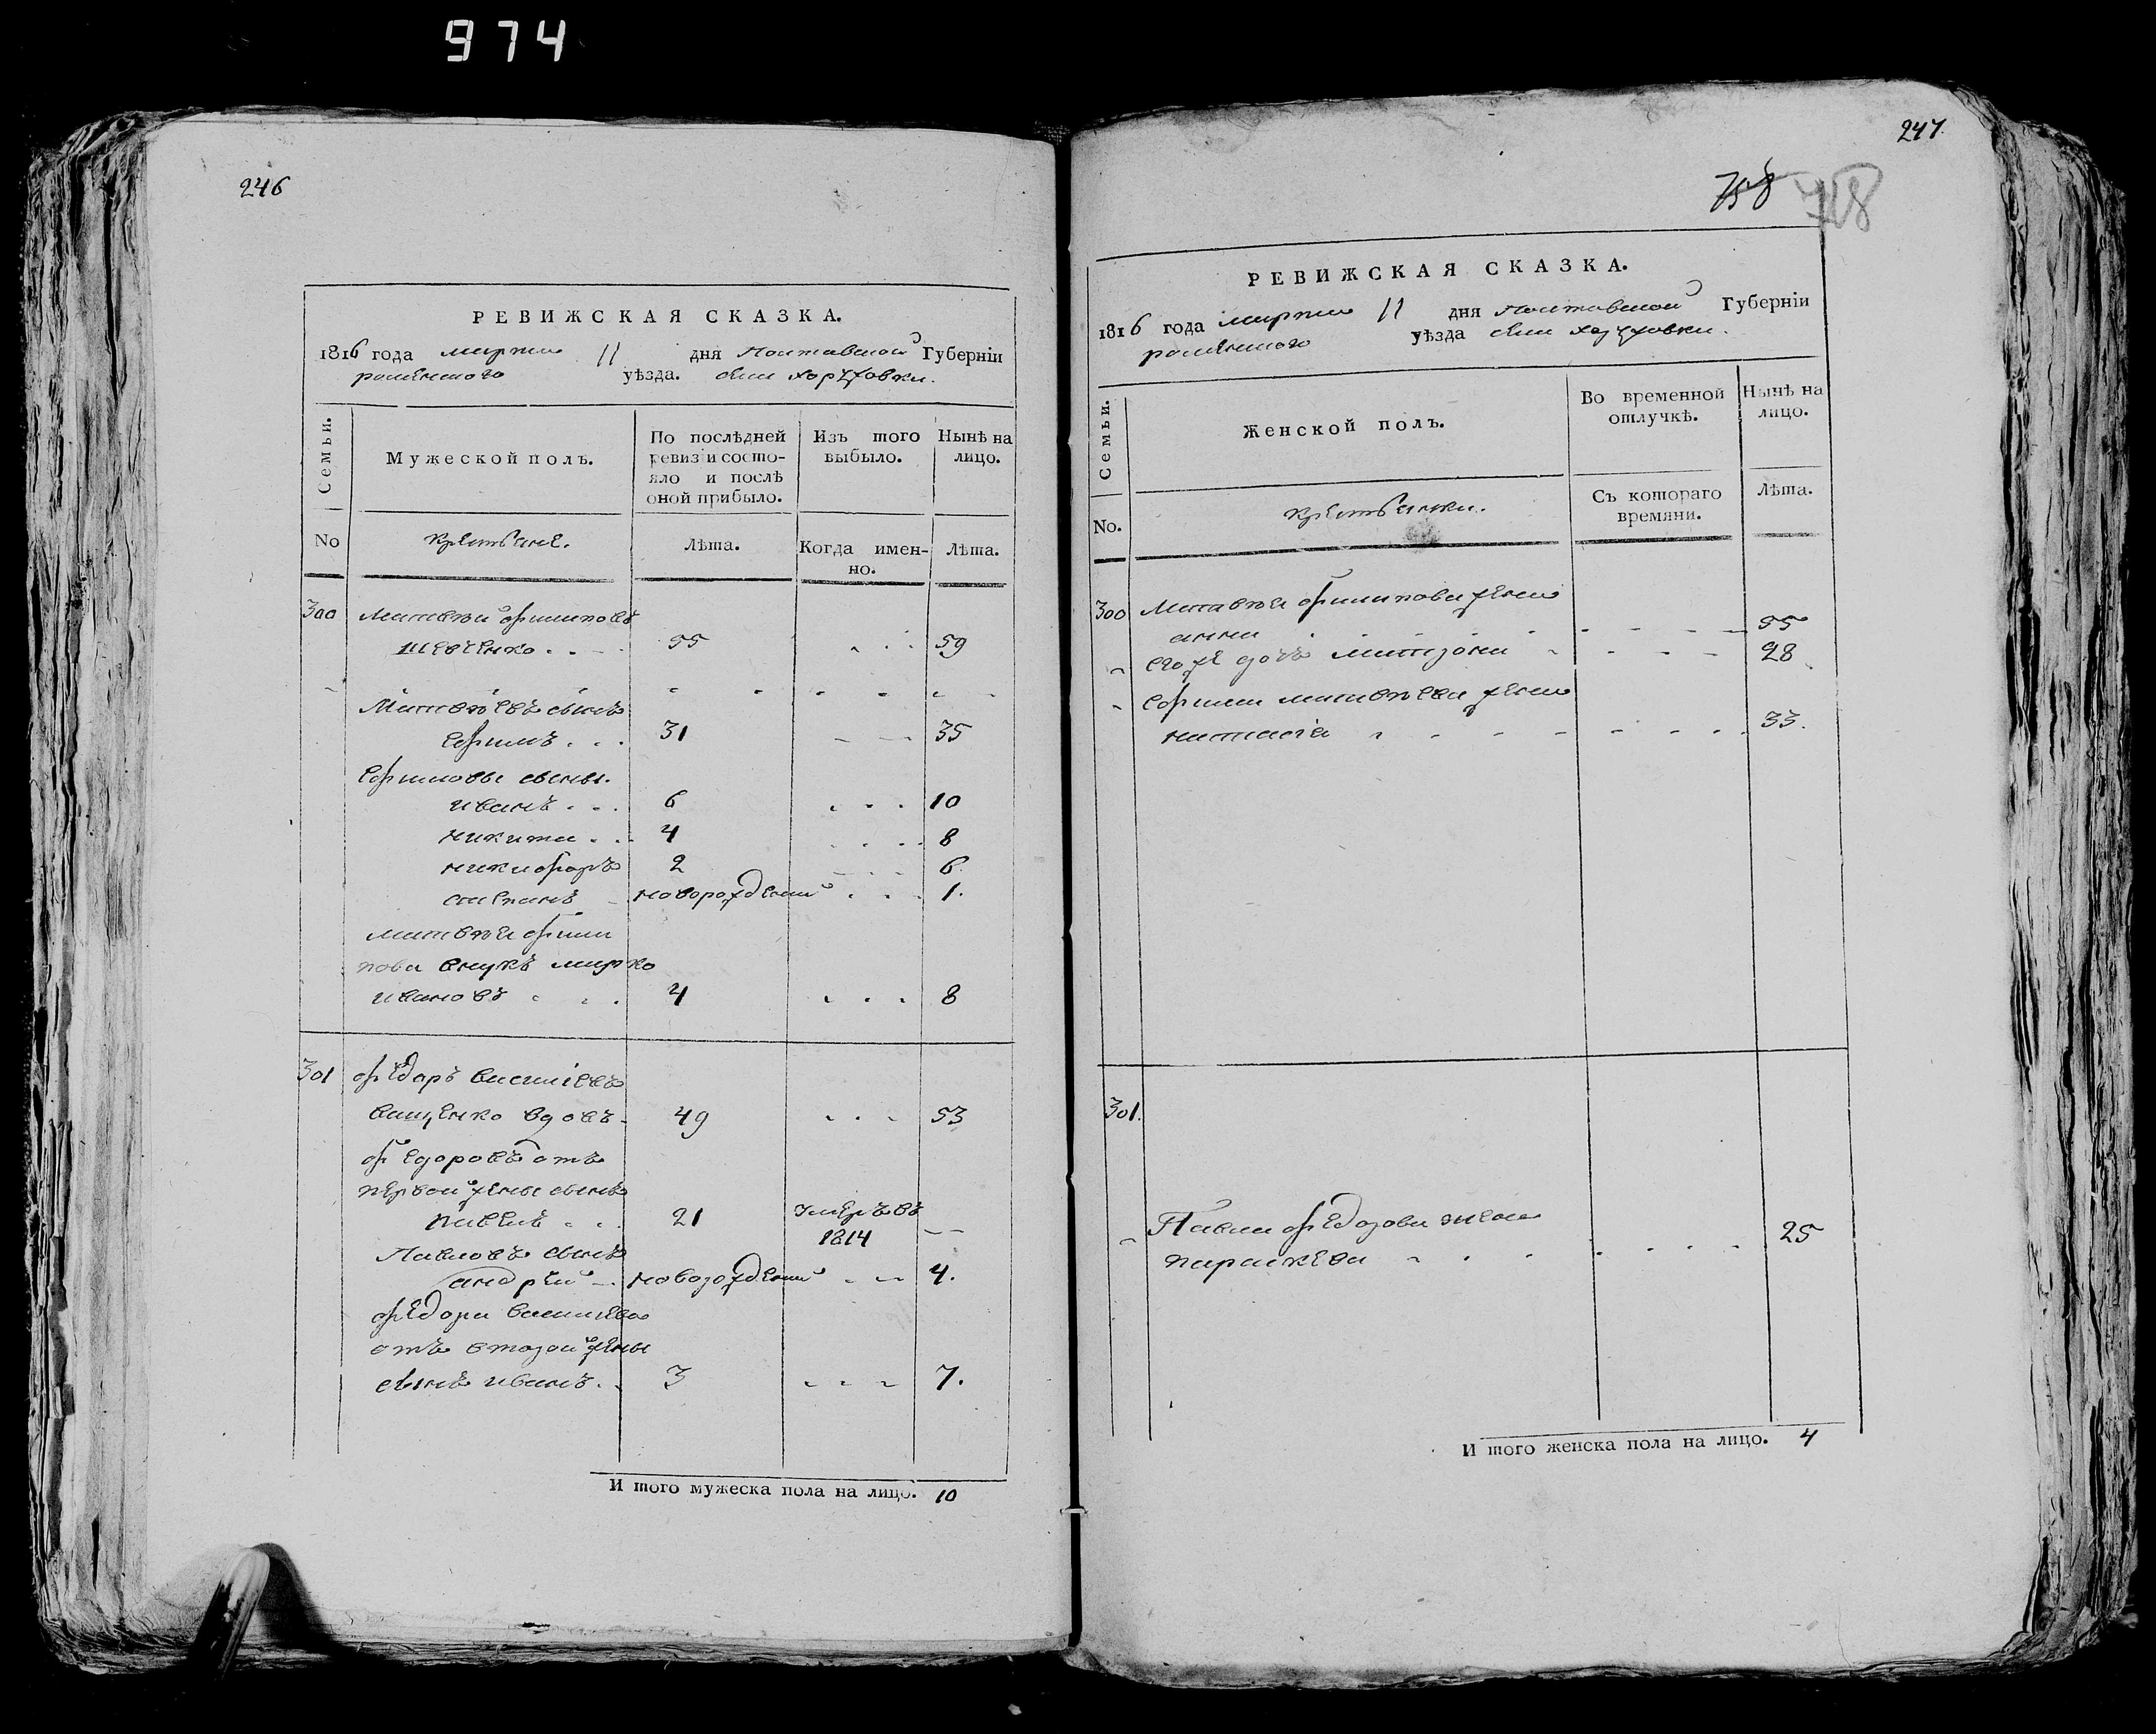 974
246
РЕВИЖСКАЯ СКАЗКА.
1816 года марта 11 дня Полтавской Губерніи
роменского уѣзда. села хоружовки.
Семьи.
Мужеской полъ.
По послѣдней ревизіи состояло и послѣ оной прибыло.
Изъ того выбыло.
Нынѣ на лицо.
No
крестьяне.
Лѣта.
Когда именно.
Лѣта.
300 матвѣй филиповъ
шевченко . . 55 . . . 59
Матвѣевъ сынъ
ефимъ . . . 31 35
ефимовы сыны.
иванъ . . . 6 . . . 10
никита . . . 4 . . . 8
никифоръ 2 6.
степанъ новорожденый . . . 1.
матвѣя фили
пова внукъ марко
ивановъ . . . 4 . . . 8
301 федоръ василіевъ
ващенко вдовъ 49 . . . 53
федоровъ отъ
первой жены сынъ
павелъ . . . 21 умеръ въ
1814 —
Павловъ сынъ
андрей — новорожденый 4.
федора василіева
отъ второй жены
сынъ иванъ . . 3 7.
И того мужеска пола на лицо. 10
247.
758 718
РЕВИЖСКАЯ СКАЗКА.
1816 года марта 11 дня Полтавской Губерніи
роменского уѣзда села хоружовки.
Семьи.
Женской полъ.
Во временной отлучкѣ.
Нынѣ на лицо.
No.
крестьянки.
Съ котораго времяни.
Лѣта.
300 Матвѣя филипова жена
анна 55
его же дочь 28
ефима матвѣева жена
настасія 33.
301.
Павла федорова жена
параскева 25
И того женска пола на лицо. 4